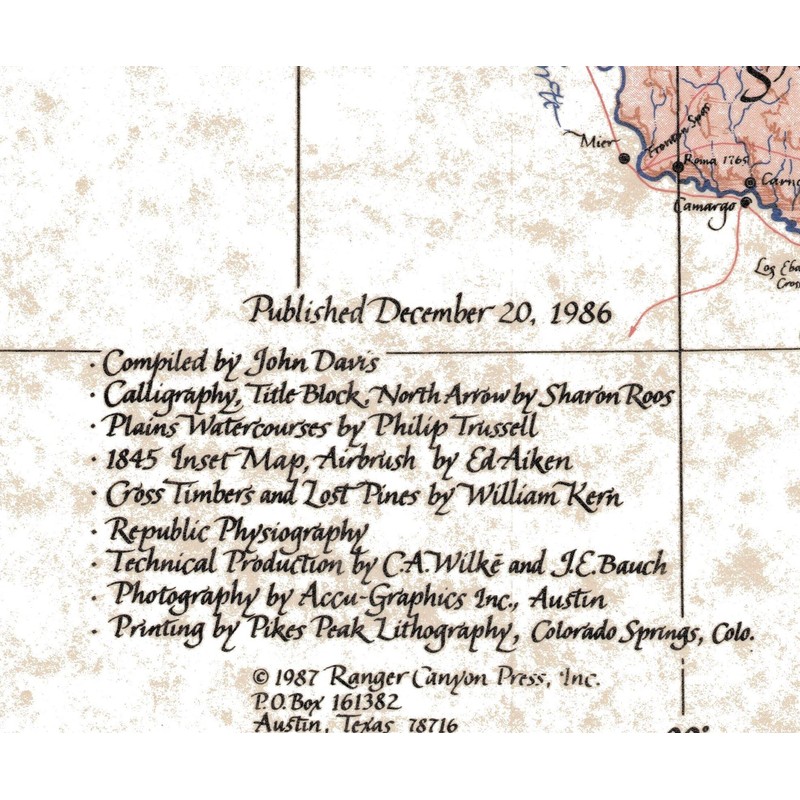 Mier
Fronton Spgs
Roma 1765
Camargo
Published December 20, 1986
· Compiled by John Davis
· Calligraphy, Title Block, North Arrow by Sharon Roos
· Plains Watercourses by Philip Trussell
· 1845 Inset Map, Airbrush by Ed Aiken
· Cross Timbers and Lost Pines by William Kern
· Republic Physiography
· Technical Production by C.A. Wilkē and J.E. Bauch
· Photography by Accu-Graphics Inc., Austin
· Printing by Pikes Peak Lithography, Colorado Springs, Colo.
© 1987 Ranger Canyon Press, Inc.
P.O. Box 161382
Austin, Texas 78716